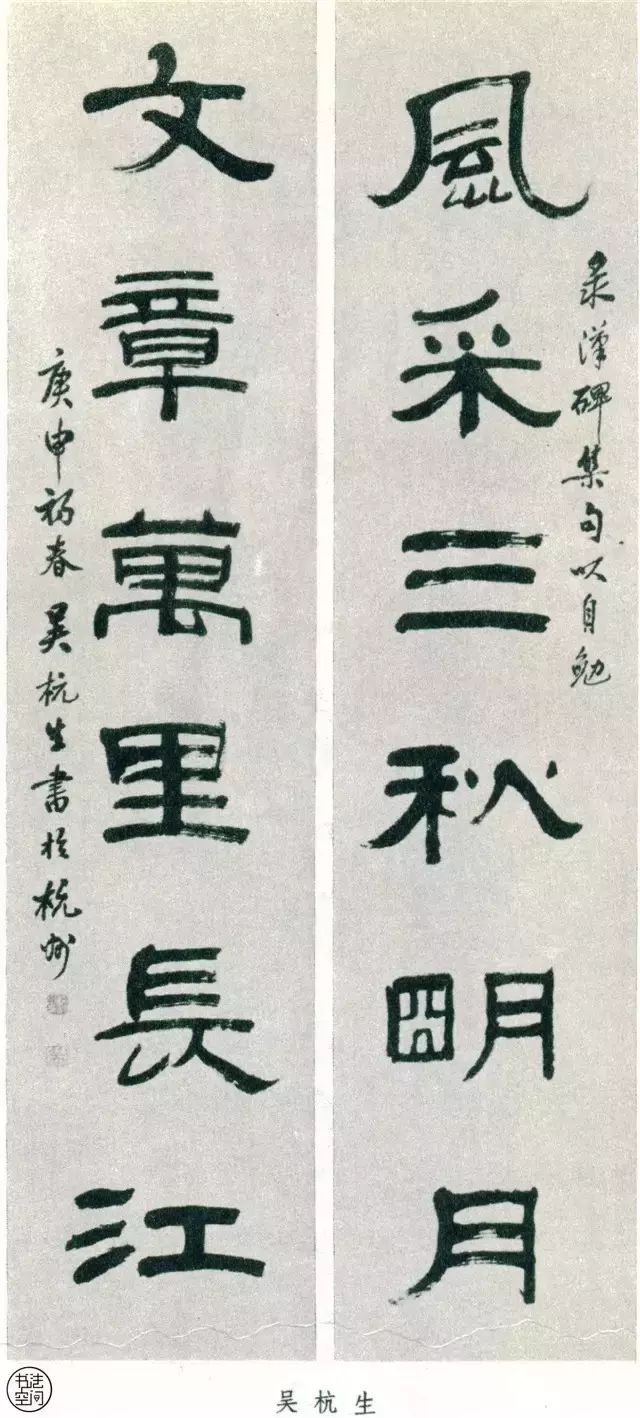 風采三秋明月
录漢碑集句以自勉
文章萬里長江
庚申初春吴杭生書於杭州
书法空间
吴杭生